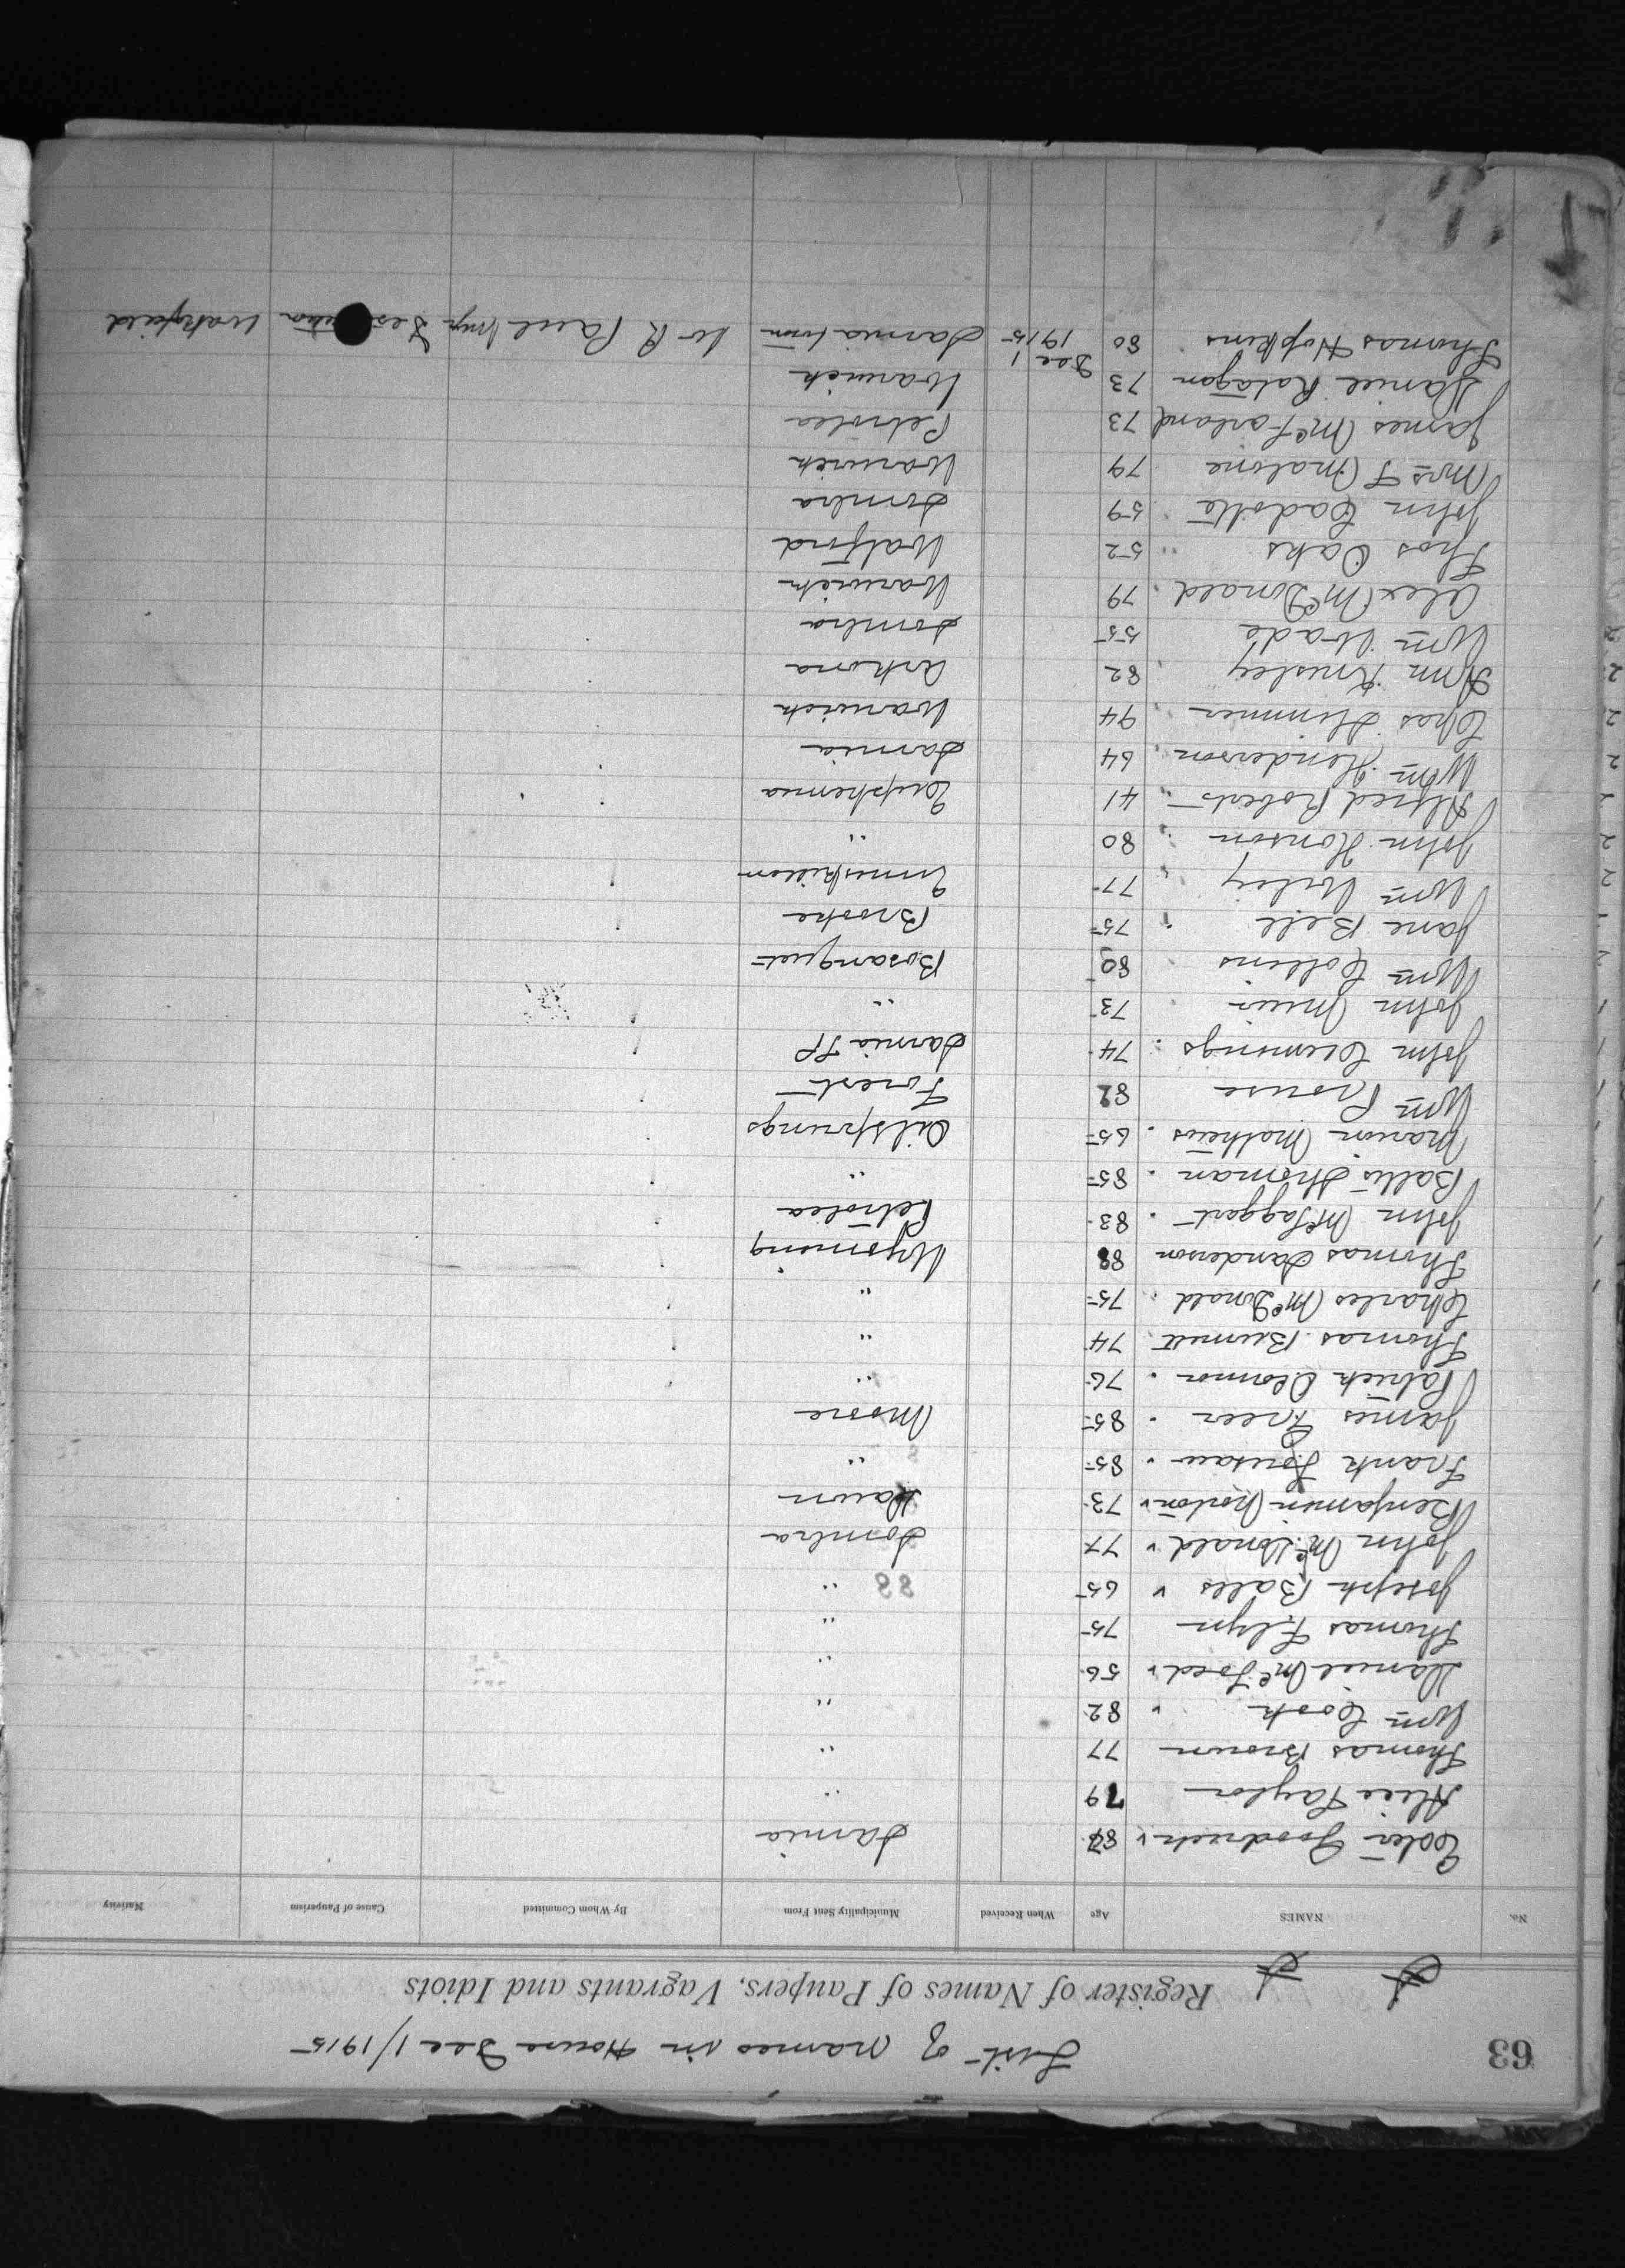 63
List of names in House Dec 1/1915
Register of Names of Paupers, Vagrants and Idiots
No. NAMES Age When Received Municipality Sent From By Whom Committed Cause of Pauperism Nativity
Goodrich 87 Sarnia
Alice Taylor 79 "
Thomas Brown 77 "
Wm Cook 82 "
Daniel 56 "
Thomas Flyn 75 "
Joseph Bales 65 "
88
John McDonald 77 Sombra
Benjamin Norton 73 Dawn
Frank 85 "
James Freer 85 Moore
Patrick OConnor 76 "
Thomas Burnett 74 "
Charles McDonald 75 "
Thomas Sanderson 88 Wyoming
John McTaggart 83 Petrolea
85 "
Marion Mathews 65 Oilsprings
Wm Prouse 82 Forest
John Clemmings 74 Sarnia TP
John Muir 73 "
Wm Collins 80 Bosanquet
Jane Bell 75 Brooke
Wm 77 Enniskillen
John Honson 80 "
Alfred Roberts 41 Euphemia
Wm Henderson 64 Sarnia
Chas 94 Warwick
Ann 82 Arkona
Wm Wade 55 Sombra
Alex McDonald 79 Warwick
Thos Oaks 52 Watford
John Cadotte 59 Sombra
Mrs T Malone 79 Warwick
James McFarland 73 Petrolea
Daniel 73 Warwick
Thomas Hopkins 80 Dec 1 1915 Sarnia town W R Paul